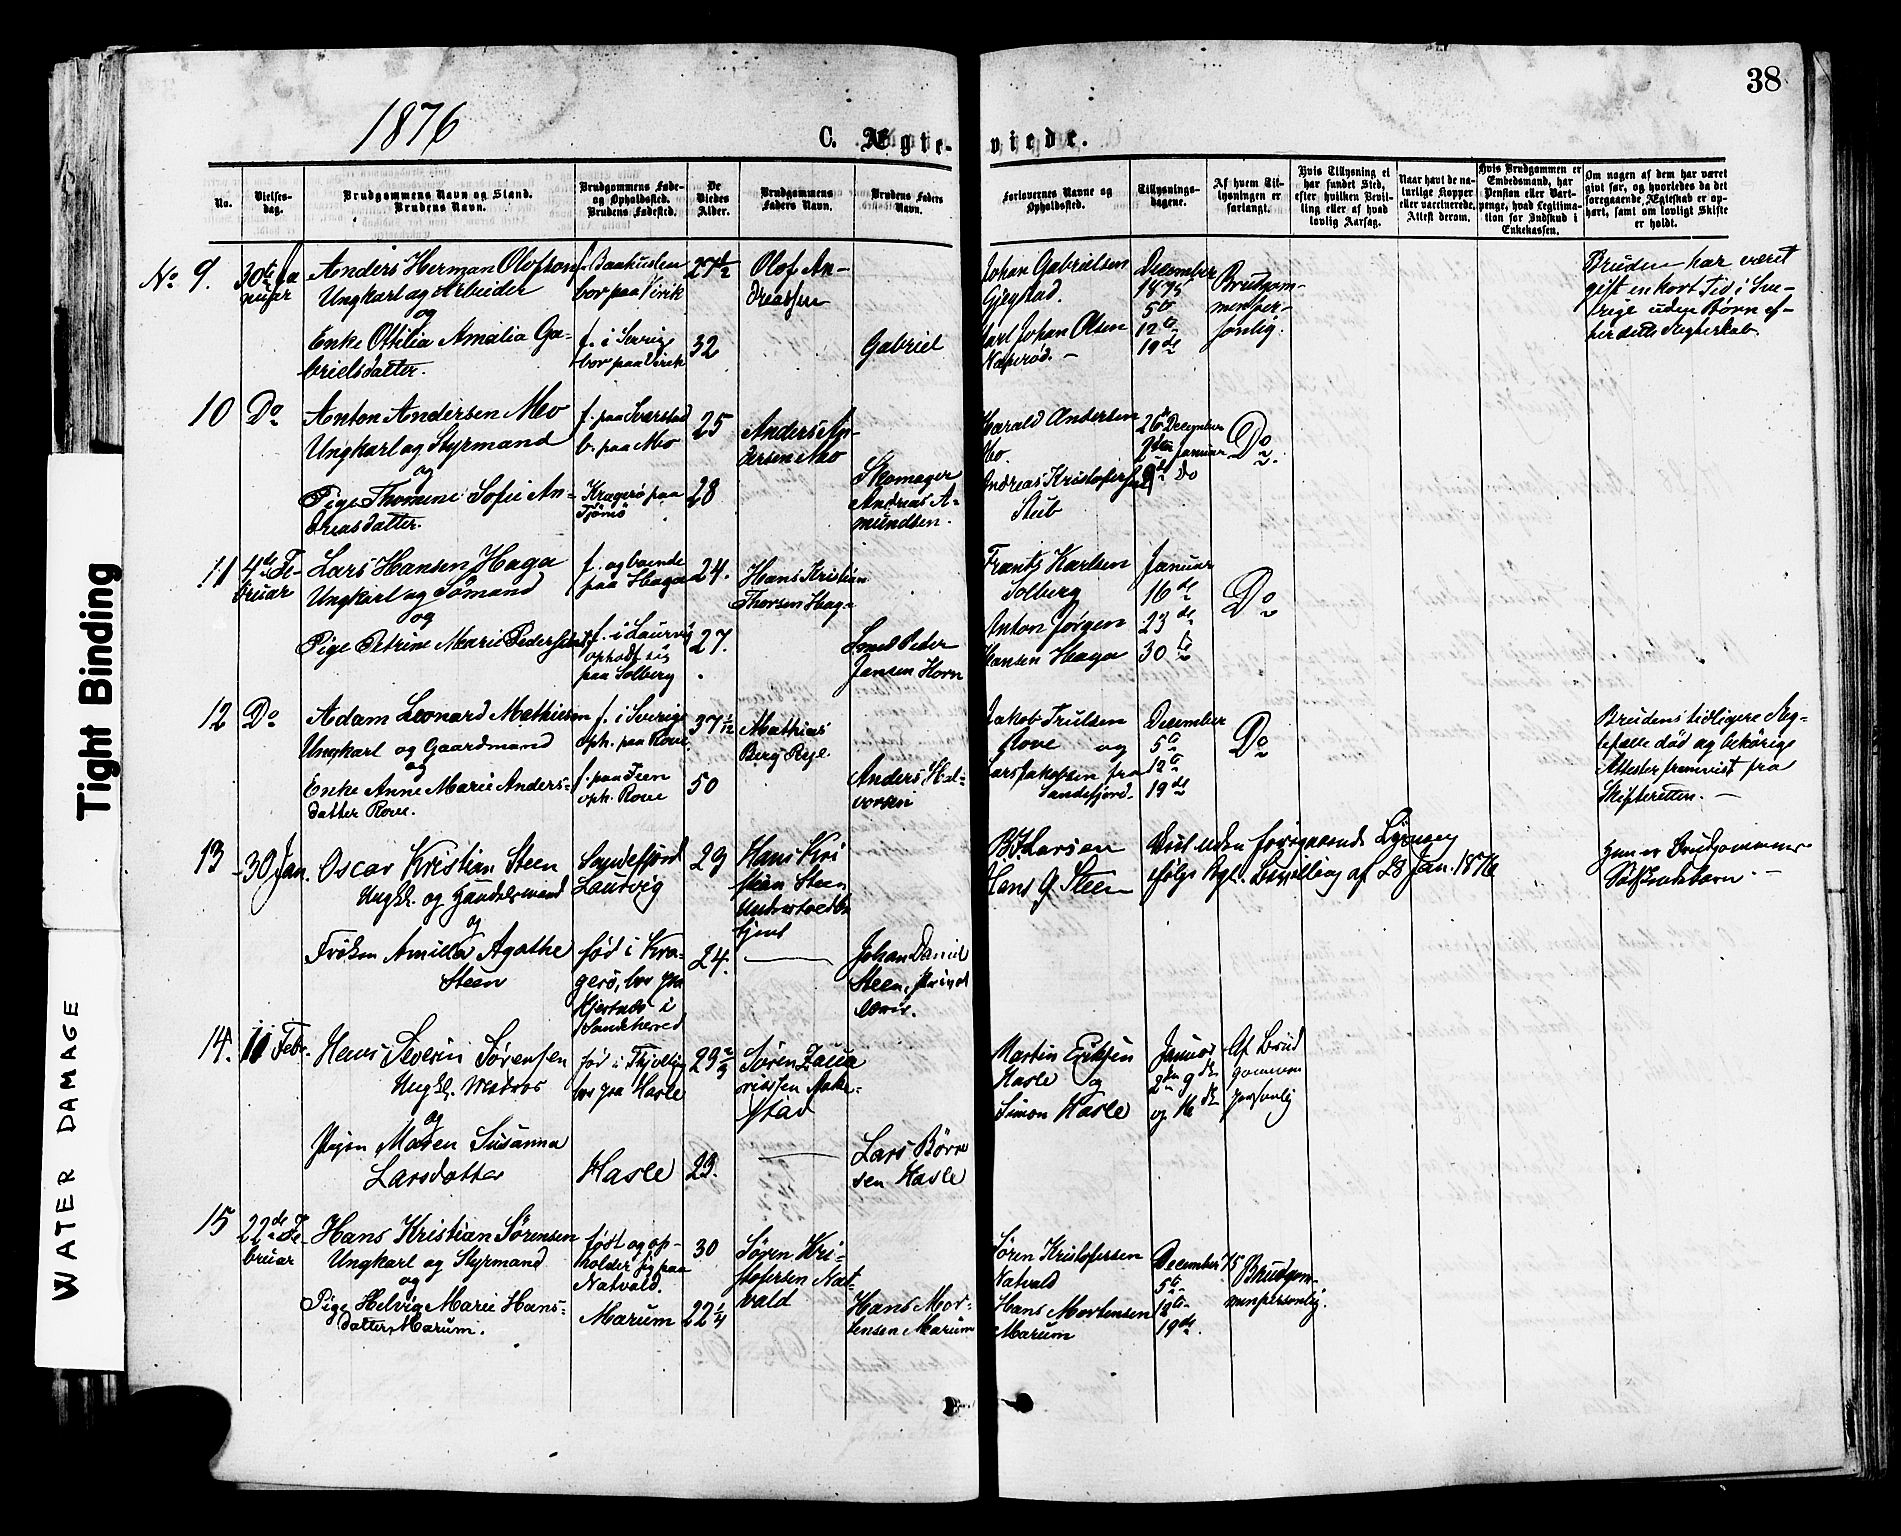 38
1876
C. Ægte-viede.
No.
Vielses-dag.
Brudgommens Navn og Stand.
Brudens Navn.
Brudgommens Føde- og Opholdssted.
Brudens Fødested.
De Viedes Alder.
Brudgommens Faders Navn.
Brudens Faders Navn.
Forlovernes Navne og Opholdssted.
Tillysnings-dagene.
Af hvem Tillysningen er forlangt.
Hvis Tillysning ei har fundet Sted, efter hvilken Bevilling eller af hvad lovlig Aarsag.
Naar havt de naturlige Kopper eller vaccinerede. Attest derom.
Hvis Brudgommen er Embedsmand, har Pension eller Vartpenge, hvad Legitimation for Indskud i Enkekassen.
Om nogen af dem har været gift før, og hvorledes da det foregaaende Ægteskab er ophørt, samt om lovligt Skifte er holdt.
No 9.
30te Januar
Anders Herman Olofson
Ungkarl og Arbeider
og
Enke Ottilia Amalia Ga-
brielsdatter.
f. Baahuslen
bor paa Virik
f. i Sverige
bor paa Virik
27 1/2
32
Olof An-
dreassen
Gabriel
Johan Gabrielsen
Gjegstad.
Karl Johan Olsen
December
1875
5te
12te
19de
Brudgom-
men per-
sonlig.
Bruden har været
gift en kort Tid i Sve-
rige uden Børn ef-
ter dette Ægteskab.
10
Do
Anton Andersen Mo
Ungkarl og Styrmand
og
Pige Thomine Sofie An-
dreasdatter.
f. paa Svarstad
b. paa Mo
Kragerø paa
Tjømø
25
28
Anders An-
dersen Mo
Skomager
Andreas A-
mundsen.
Harald Andersen
Mo.
Andreas Kristofersen
Stub
26 December
2den Januar
9de Do
Do
11
4de Fe-
bruar
Lars Hansen Haga
Ungkarl og Sømand
og
Pige Petrine Marie Pedersdatter
f. og boende
paa Haga
f. i Laurvig
opholdt sig
paa Solberg
24.
27.
Hans Kristian
Thorsen Haga
Smed Peder
Jansen Horn
Frants Karlsen
Solberg
Anton Jørgen
Hansen Haga
Januar
16de
23de
30te
Do
12
Do
Adam Leonard Mathiesen
Ungkarl og Gaardmand
og
Enke Anne Marie Anders-
datter Rove.
f. i Sverige
oph. paa Rove
f. paa Teen
oph. Rove
37 1/12
50
Mathias
Berg
Anders Hal-
vorsen
Jakob Trulsen
Rove og
Lars Jakobsen fra
Sandefjord.
December
5te
12te
19de
Do
Brudens tidligere Æg-
tefælle død og behørige
Attester fremvist fra
Skifteretten.
13
30 Jan.
Oscar Kristian Steen
Ungkl. og Handelsmand
og
Frøken Amilla Agathe
Steen
Sandefjord
Laurvig
født i Kra-
gerø, bor paa
Hjertnes i
Sandeherred
29
24.
Hans Kri
stian Steen
Undertoldbe
tjent
Johan Daniel
Steen,
B. F. Larsen
Hans G. Steen
Viet uden foregaaende Lysning
ifølge Kgl. Bevilling af 28 Jan. 1876
Hun er Brudgommens
Søskendebarn.
14.
11 Febr.
Hans Severin Sørensen
Ungkl. Matros
og
Pigen Maren Susanna
Larsdatter
født i Thjølling
bor paa Hasle
Hasle
23.
Søren Zaca
riassen
stad
Lars Børre
sen Hasle
Martin Eriksen
Hasle og
Simon Hasle
Januar
2den 9de
og 16de
Af Brud
gommen
personlig
15
22de Fe-
bruar
Hans Kristian Sørensen
Ungkarl og Styrmand
og
Pige Helvig Marie Hans-
datter, Marum.
født og op-
holder sig paa
Natvald.
Marum
30
22 1/4
Søren Kri-
stofersen Nat-
vald
Hans Mor-
tensen Marum
Søren Kristofersen
Natvald
Hans Mortensen
Marum
December 75
5te
12te
19de
Brudgom-
men personlig.
Tight Binding
WATER DAMAGE